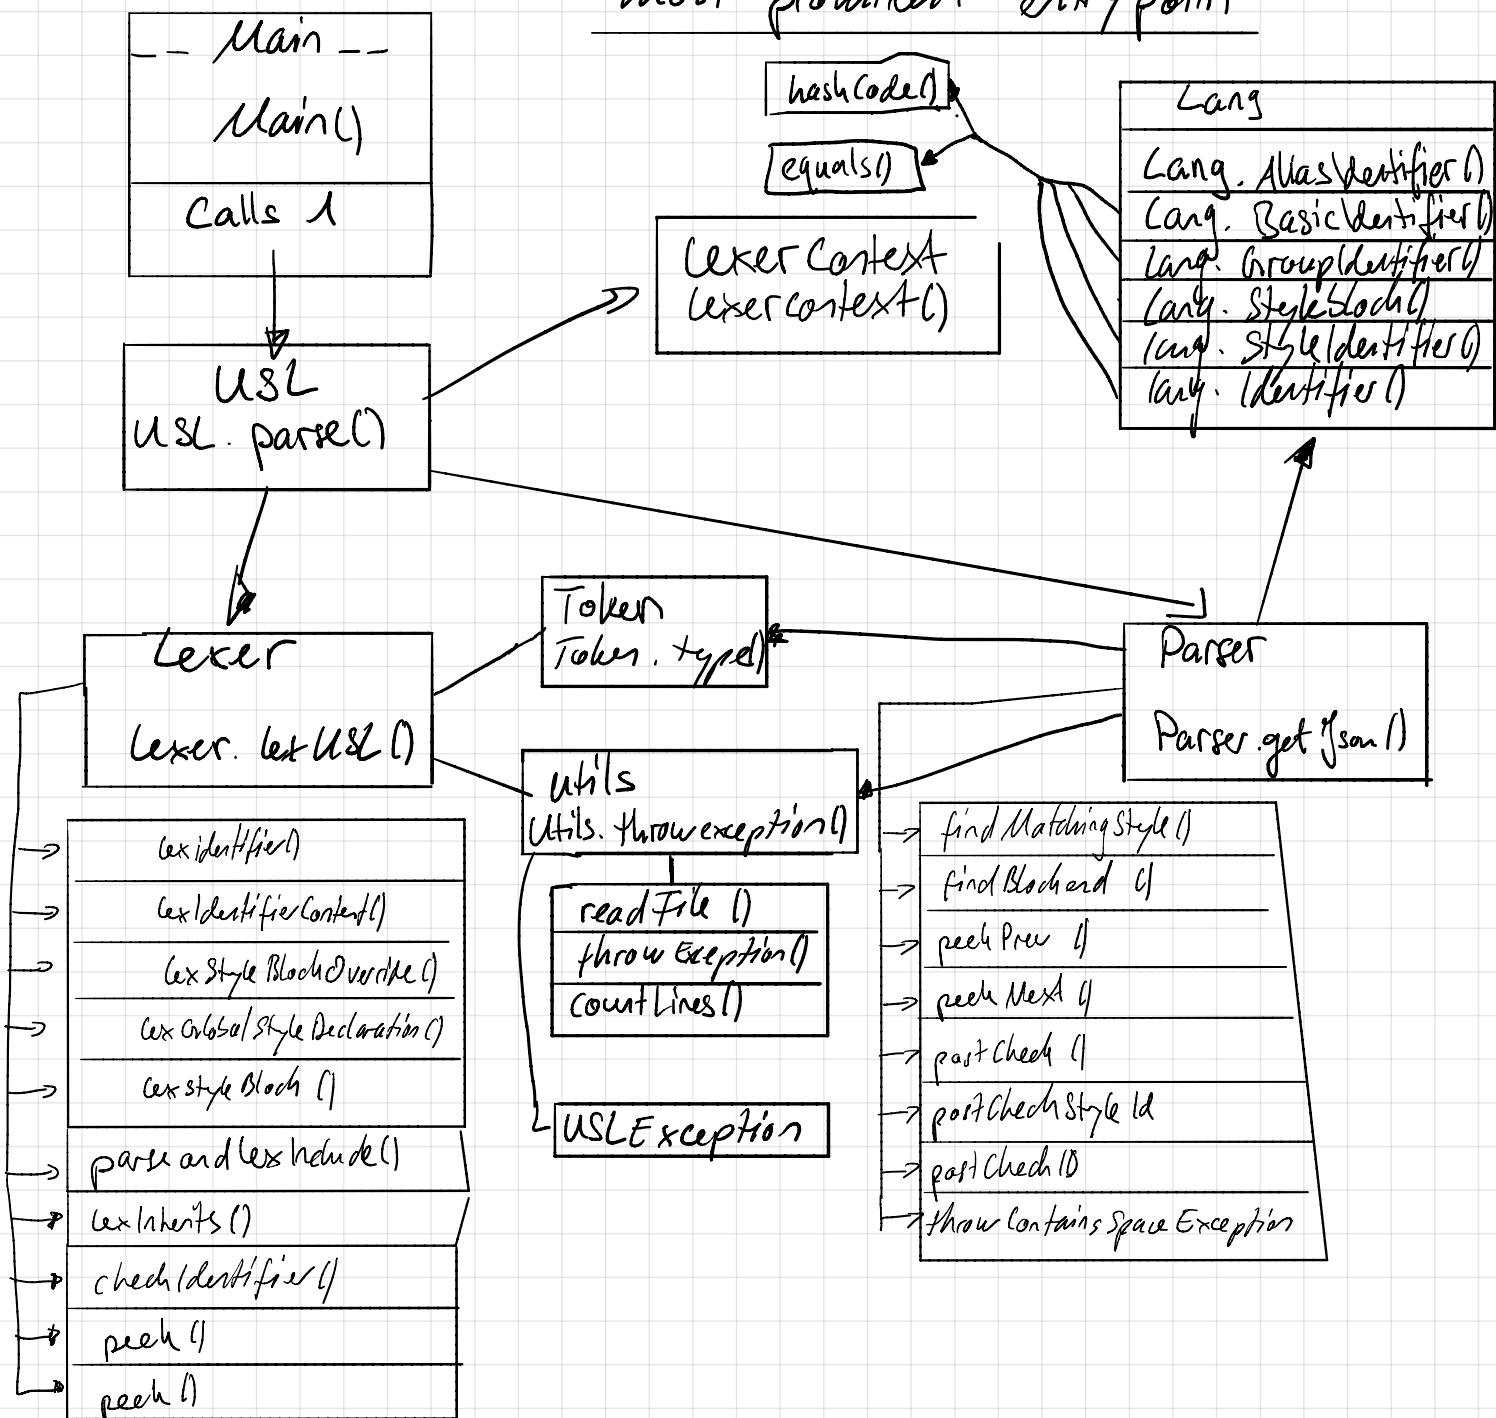 most prominent entrypoint
__ Main __
Main()
Calls 1
hashCode()
equals()
Lang
Lang. AliasIdentifier()
Lang. BasicIdentifier()
Lang. GroupIdentifier()
Lang. StyleBlock()
Lang. StyleIdentifier()
Lang. Identifier()
LexerContext
lexercontext()
USL
USL. parse()
Token
Token. type()
Lexer
Lexer. lexUSL()
Parser
Parser.getJson()
Utils
Utils.throwexception()
readFile ()
throwException()
countLines()
USLException
lexidentifier()
lexIdentifierContent()
lexStyleBlockOverride()
lexGlobalStyleDeclaration()
lexstyleBlock ()
parseandlexInclude()
lexInherits ()
checkIdentifier()
peek ()
peek ()
findMatchingStyle()
findBlockend ()
peekPrev ()
peekNext ()
postCheck ()
postCheckStyleId
postCheckID
throwContainsSpaceException